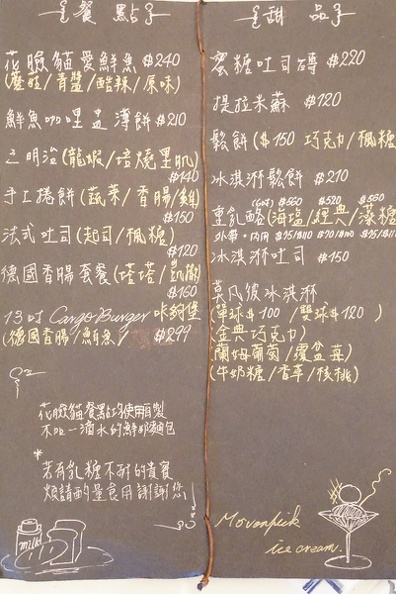 餐 點
花臉貓愛鮮魚 $240
(蘑菇/青醬/酸辣/原味)
鮮魚咖哩盅薄餅 $210
三明治(龍蝦/培燒里肌)
$140
手工捲餅(蔬菜/香腸/雞)
$150
法式吐司(起司/楓糖)
$120
德國香腸套餐(塔塔/凱薩)
$160
13吋 Cargo Burger 咔夠堡
(德國香腸/魚魚) $299
花臉貓餐點均使用自製
不加一滴水的鮮奶麵包
*若有乳糖不耐的貴賓
煩請酌量食用謝謝您
milk
甜 品
蜜糖吐司磚 $220
提拉米蘇 $120
鬆餅($150 巧克力/楓糖
冰淇淋鬆餅 $210
$560 $520 $560
重乳酪(海塩/經典/藻糖
外帶·內用 $75/$110 $70/$100 $75/$11
冰淇淋吐司 $150
莫凡彼冰淇淋
(單球$100/雙球$120)
(金典巧克力)
蘭姆葡萄/覆盆莓)
(牛奶糖/香草/核桃)
Movenpick
ice cream.